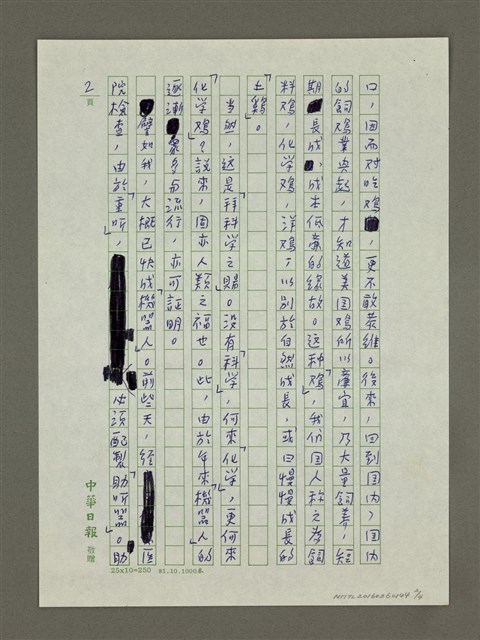 口，因而对吃鸡，更不敢恭維。後來，回到国内，国内
的飼鸡業興起，才知道美国鸡所以廉宜，乃大量飼養，短
期長成，成本低廉的緣故。这种「鸡」，我們国人称之為「飼
料鸡，化学鸡，洋鸡」，以别於自然成長，或曰慢慢成長的
「土鷄」。
当然，这是拜科学之賜。没有「科学」，何來「化学」，更何來
「化学鸡」？説來，固亦人類之福也。此，由於年來「機器人」的
逐漸眾多与流行，亦可証明。
譬如我，大概已快成「機器人」。前些天，經医
院檢查，由於「重听」，必須配製「助听器」。助
2
頁
中華日報
敬贈
25x10=250 81.10.1000本
NMTL20160060444 2/4